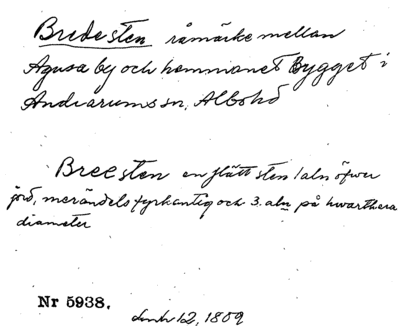 Bredesten råmärke mellan
Agusa by och hemmanet Bygget i
Andrarums sn, Albohd
Breesten en flätt sten 1 aln öfwer
jord, merändels fyrkantig och 3. aln på hwarthera
diameter
Nr 5938.
12, 1809